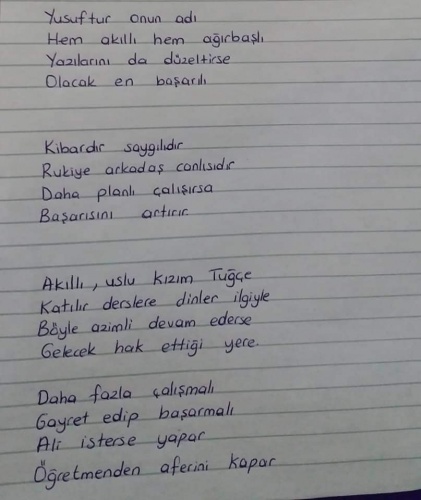 Yusuftur onun adı
Hem akıllı hem ağırbaşlı
Yazılarını da düzeltirse
Olacak en başarılı
Kibardır saygılıdır
Rukiye arkadaş canlısıdır
Daha planlı çalışırsa
Başarısını artırır.
Akıllı, uslu kızım Tuğçe
Katılır derslere dinler ilgiyle
Böyle azimli devam ederse
Gelecek hak ettiği yere.
Daha fazla çalışmalı
Gayret edip başarmalı
Ali isterse yapar
Öğretmenden aferini kapar